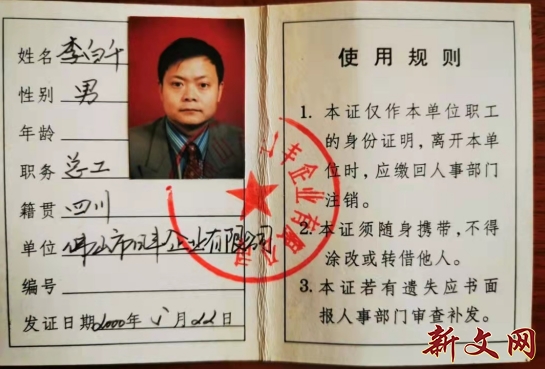 姓名 李白千
性别 男
年龄
职务 总工
籍贯 四川
单位 佛山市汉丰企业有限公司
编号
发证日期2000年8月22日
丰企业有限公司
使用规则
1. 本证仅作本单位职工
的身份证明，离开本单
位时，应缴回人事部门
注销。
2. 本证须随身携带，不得
涂改或转借他人。
3. 本证若有遗失应书面
报人事部门审查补发。
新文网